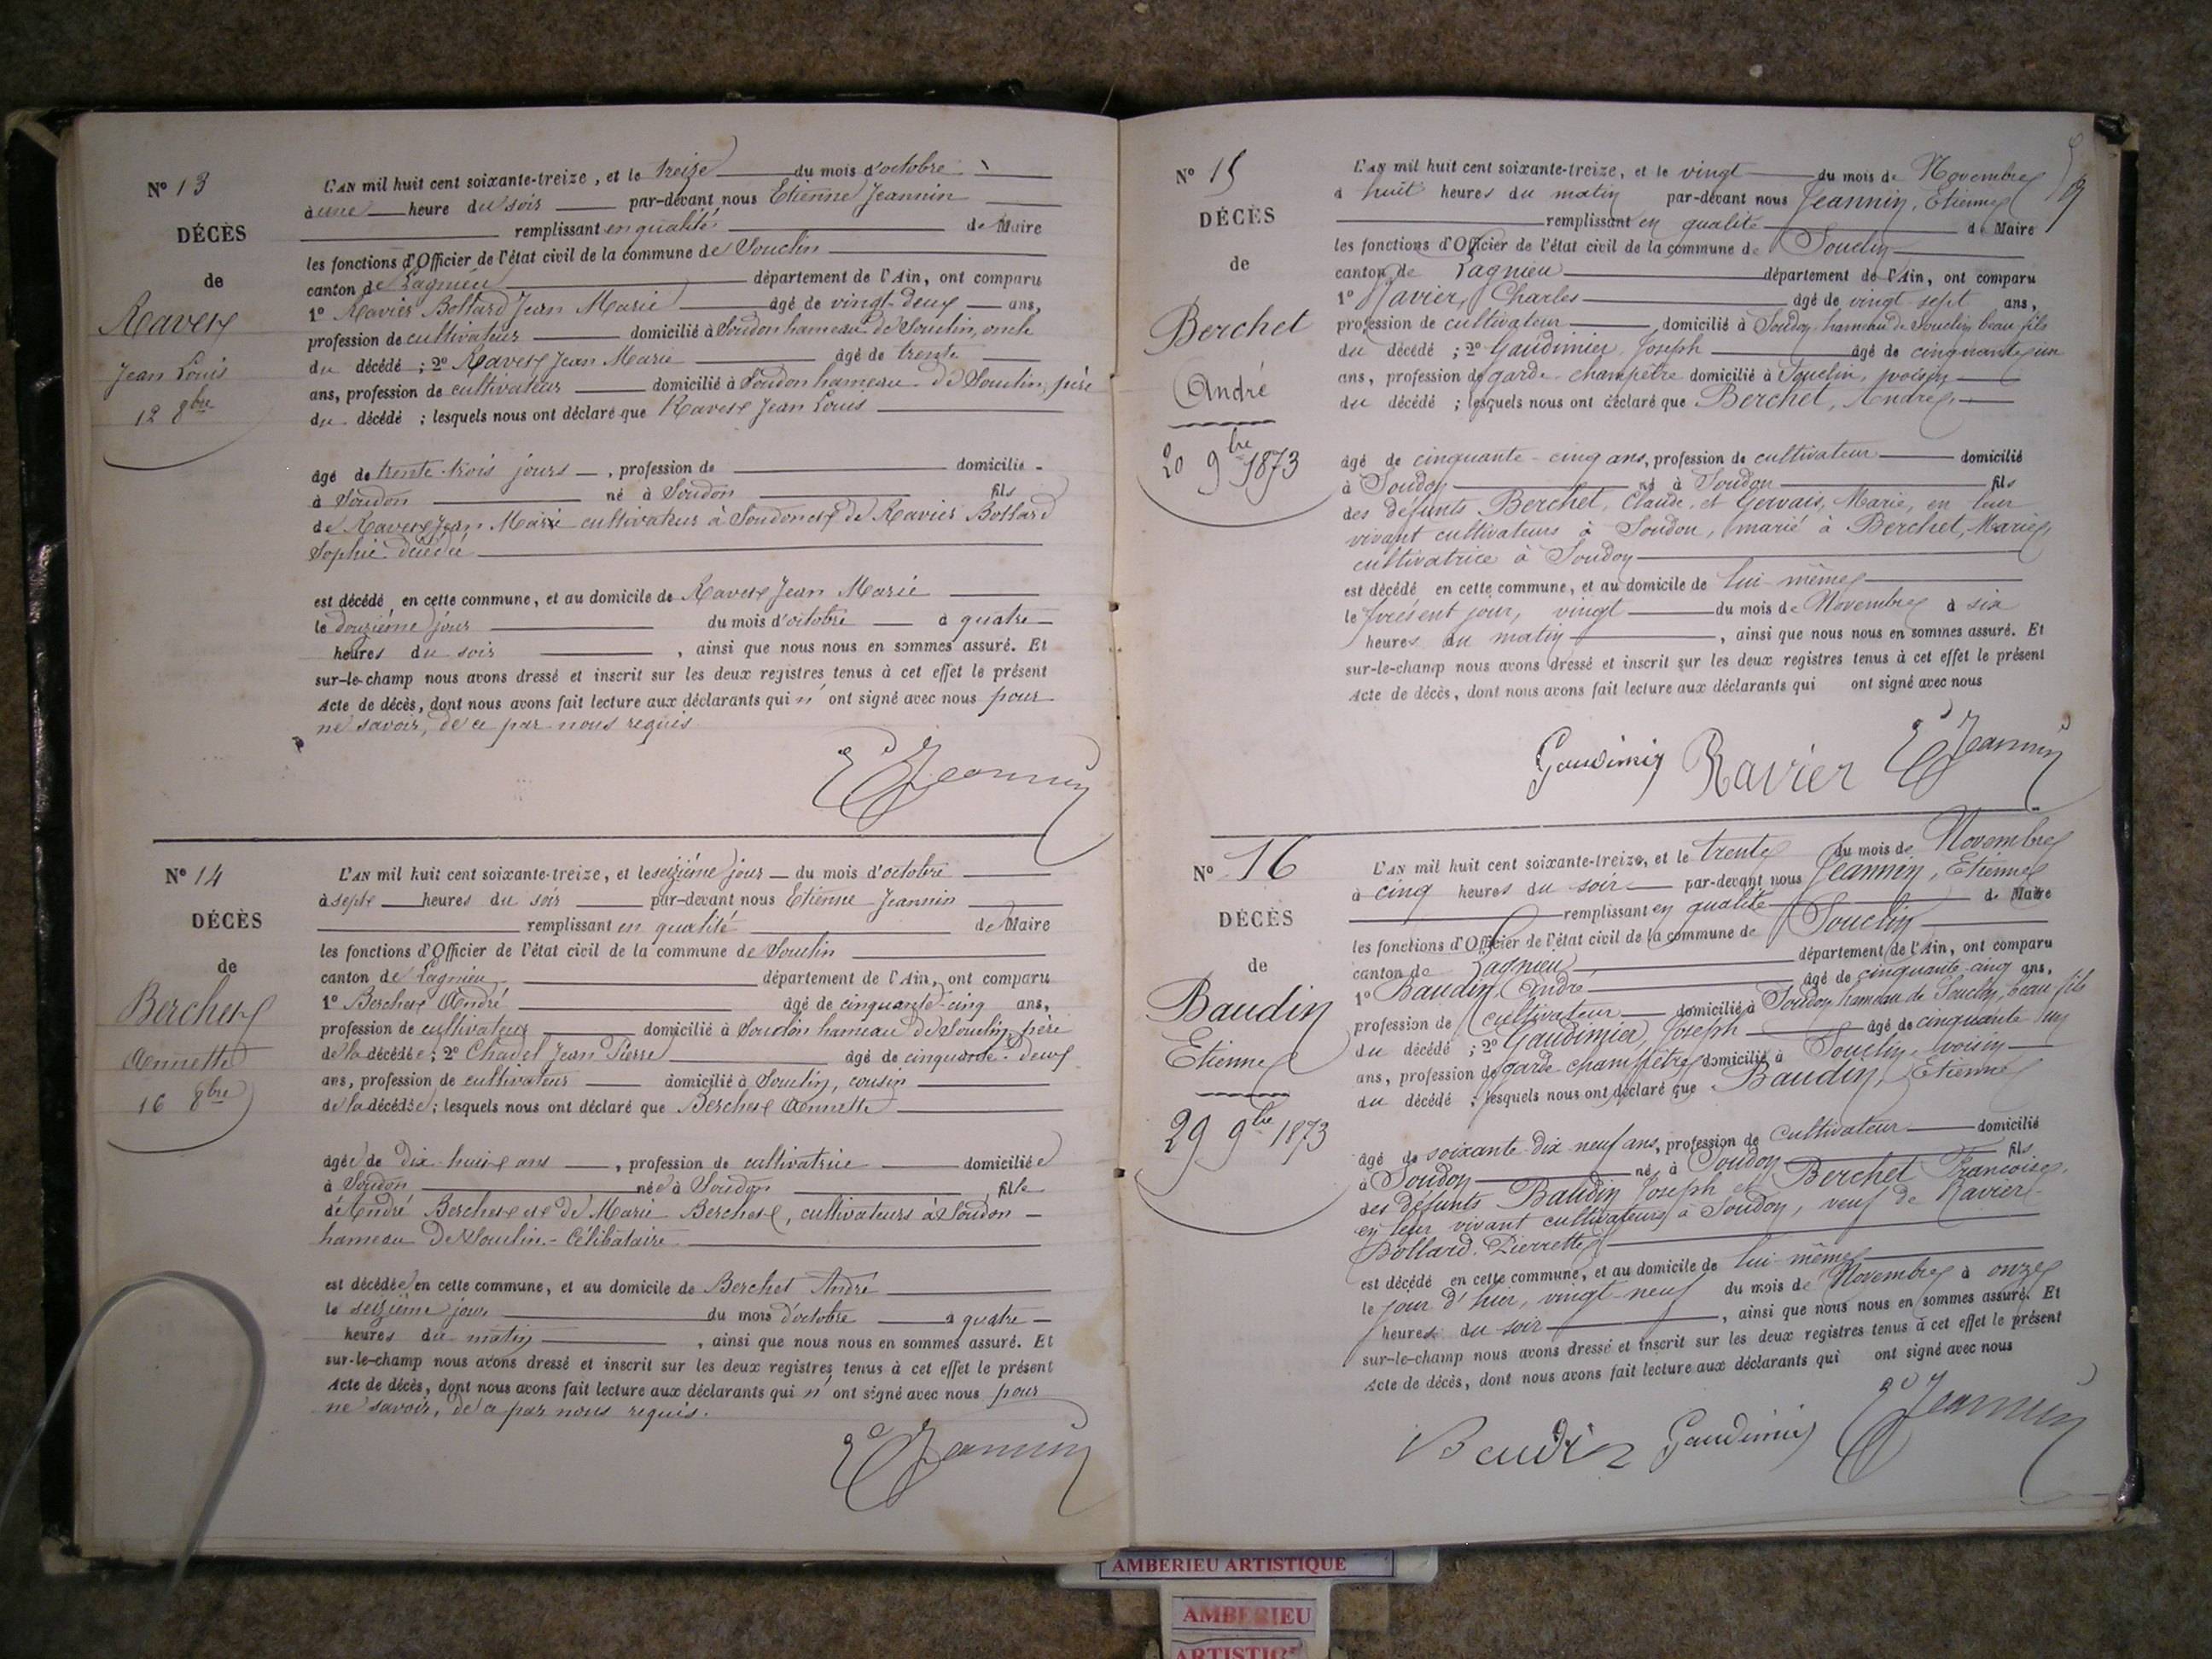 N° 13
DÉCÈS
de
Ravet
Jean Louis
12 8bre
L'AN mil huit cent soixante-treize, et le treize du mois d'octobre
à une heure du soir par-devant nous Etienne Jeannin
remplissant en qualité de Maire
les fonctions d'Officier de l'état civil de la commune de Souclin
canton de Lagnieu département de l'Ain, ont comparu
1° Ravier Bollard Jean Marie âgé de vingt-deux ans,
profession de cultivateur domicilié à Soudon hameau de Souclin, oncle
du décédé ; 2° Ravet Jean Marie âgé de trente
ans, profession de cultivateur domicilié à Soudon hameau de Souclin, père
du décédé ; lesquels nous ont déclaré que Ravet Jean Louis
âgé de trente-trois jours, profession de domicilié
à Soudon né à Soudon fils
de Ravet Jean Marie cultivateur à Soudon et de Ravier Bollard
Sophie décédée
est décédé en cette commune, et au domicile de Ravet Jean Marie
le douzième jour du mois d'octobre à quatre
heures du soir, ainsi que nous nous en sommes assuré. Et
sur-le-champ nous avons dressé et inscrit sur les deux registres tenus à cet effet le présent
Acte de décès, dont nous avons fait lecture aux déclarants qui n'ont signé avec nous pour
ne savoir, de ce par nous requis
Et Jeannin
N° 14
DÉCÈS
de
Berchet
Annette
16 8bre
L'AN mil huit cent soixante-treize, et le seizième jour du mois d'octobre
à sept heures du soir par-devant nous Etienne Jeannin
remplissant en qualité de Maire
les fonctions d'Officier de l'état civil de la commune de Souclin
canton de Lagnieu département de l'Ain, ont comparu
1° Berchet André âgé de cinquante-cinq ans,
profession de cultivateur domicilié à Soudon hameau de Souclin, père
de la décédée ; 2° Chavel Jean Pierre âgé de cinquante-deux
ans, profession de cultivateur domicilié à Souclin, cousin
de la décédée ; lesquels nous ont déclaré que Berchet Annette
âgée de dix-huit ans, profession de cultivatrice domiciliée
à Soudon née à Soudon fille
de André Berchet et de Marie Berchet, cultivateurs à Soudon
hameau de Souclin.- Célibataire
est décédée en cette commune, et au domicile de Berchet André
le seizième jour du mois d'octobre à quatre
heures du matin, ainsi que nous nous en sommes assuré. Et
sur-le-champ nous avons dressé et inscrit sur les deux registres tenus à cet effet le présent
Acte de décès, dont nous avons fait lecture aux déclarants qui n'ont signé avec nous pour
ne savoir, de ce par nous requis.
Et Jeannin
N° 15
DÉCÈS
de
Berchet
André
20 9bre 1873
L'AN mil huit cent soixante-treize, et le vingt du mois de Novembre
à huit heures du matin par-devant nous Jeannin, Etienne
remplissant en qualité de Maire
les fonctions d'Officier de l'état civil de la commune de Souclin
canton de Lagnieu département de l'Ain, ont comparu
1° Ravier, Charles âgé de vingt-sept ans,
profession de cultivateur, domicilié à Soudon hameau de Souclin, beau fils
du décédé ; 2° Gaudimier, Joseph âgé de cinquante un
ans, profession de garde-champêtre domicilié à Souclin, voisin
du décédé ; lesquels nous ont déclaré que Berchet, André,
âgé de cinquante-cinq ans, profession de cultivateur domicilié
à Soudon né à Soudon fils
des défunts Berchet, Claude, et Gervais, Marie, en leur
vivant cultivateurs à Soudon, marié à Berchet, Marie,
cultivatrice à Soudon
est décédé en cette commune, et au domicile de lui-même
le présent jour, vingt du mois de Novembre à six
heures du matin, ainsi que nous nous en sommes assuré. Et
sur-le-champ nous avons dressé et inscrit sur les deux registres tenus à cet effet le présent
Acte de décès, dont nous avons fait lecture aux déclarants qui ont signé avec nous
Gaudimier Ravier Et Jeannin
N° 16
DÉCÈS
de
Baudin
Etienne
29 9bre 1873
L'AN mil huit cent soixante-treize, et le trente du mois de Novembre
à cinq heures du soir par-devant nous Jeannin, Etienne
remplissant en qualité de Maire
les fonctions d'Officier de l'état civil de la commune de Souclin
canton de Lagnieu département de l'Ain, ont comparu
1° Baudin, André âgé de cinquante-cinq ans,
profession de cultivateur domicilié à Soudon hameau de Souclin, beau fils
du décédé ; 2° Gaudimier, Joseph âgé de cinquante un
ans, profession de garde champêtre domicilié à Souclin, voisin
du décédé ; lesquels nous ont déclaré que Baudin, Etienne
âgé de soixante-dix neuf ans, profession de cultivateur domicilié
à Soudon né à Soudon fils
des défunts Baudin Joseph et Berchet Françoise,
en leur vivant cultivateurs à Soudon, veuf de Ravier-
Bollard, Pierrette
est décédé en cette commune, et au domicile de lui-même
le jour d'hier, vingt-neuf du mois de Novembre à onze
heures du soir, ainsi que nous nous en sommes assuré. Et
sur-le-champ nous avons dressé et inscrit sur les deux registres tenus à cet effet le présent
Acte de décès, dont nous avons fait lecture aux déclarants qui ont signé avec nous
Baudin Gaudimier Et Jeannin
AMBERIEU ARTISTIQUE
AMBERIEU
ARTISTIQUE